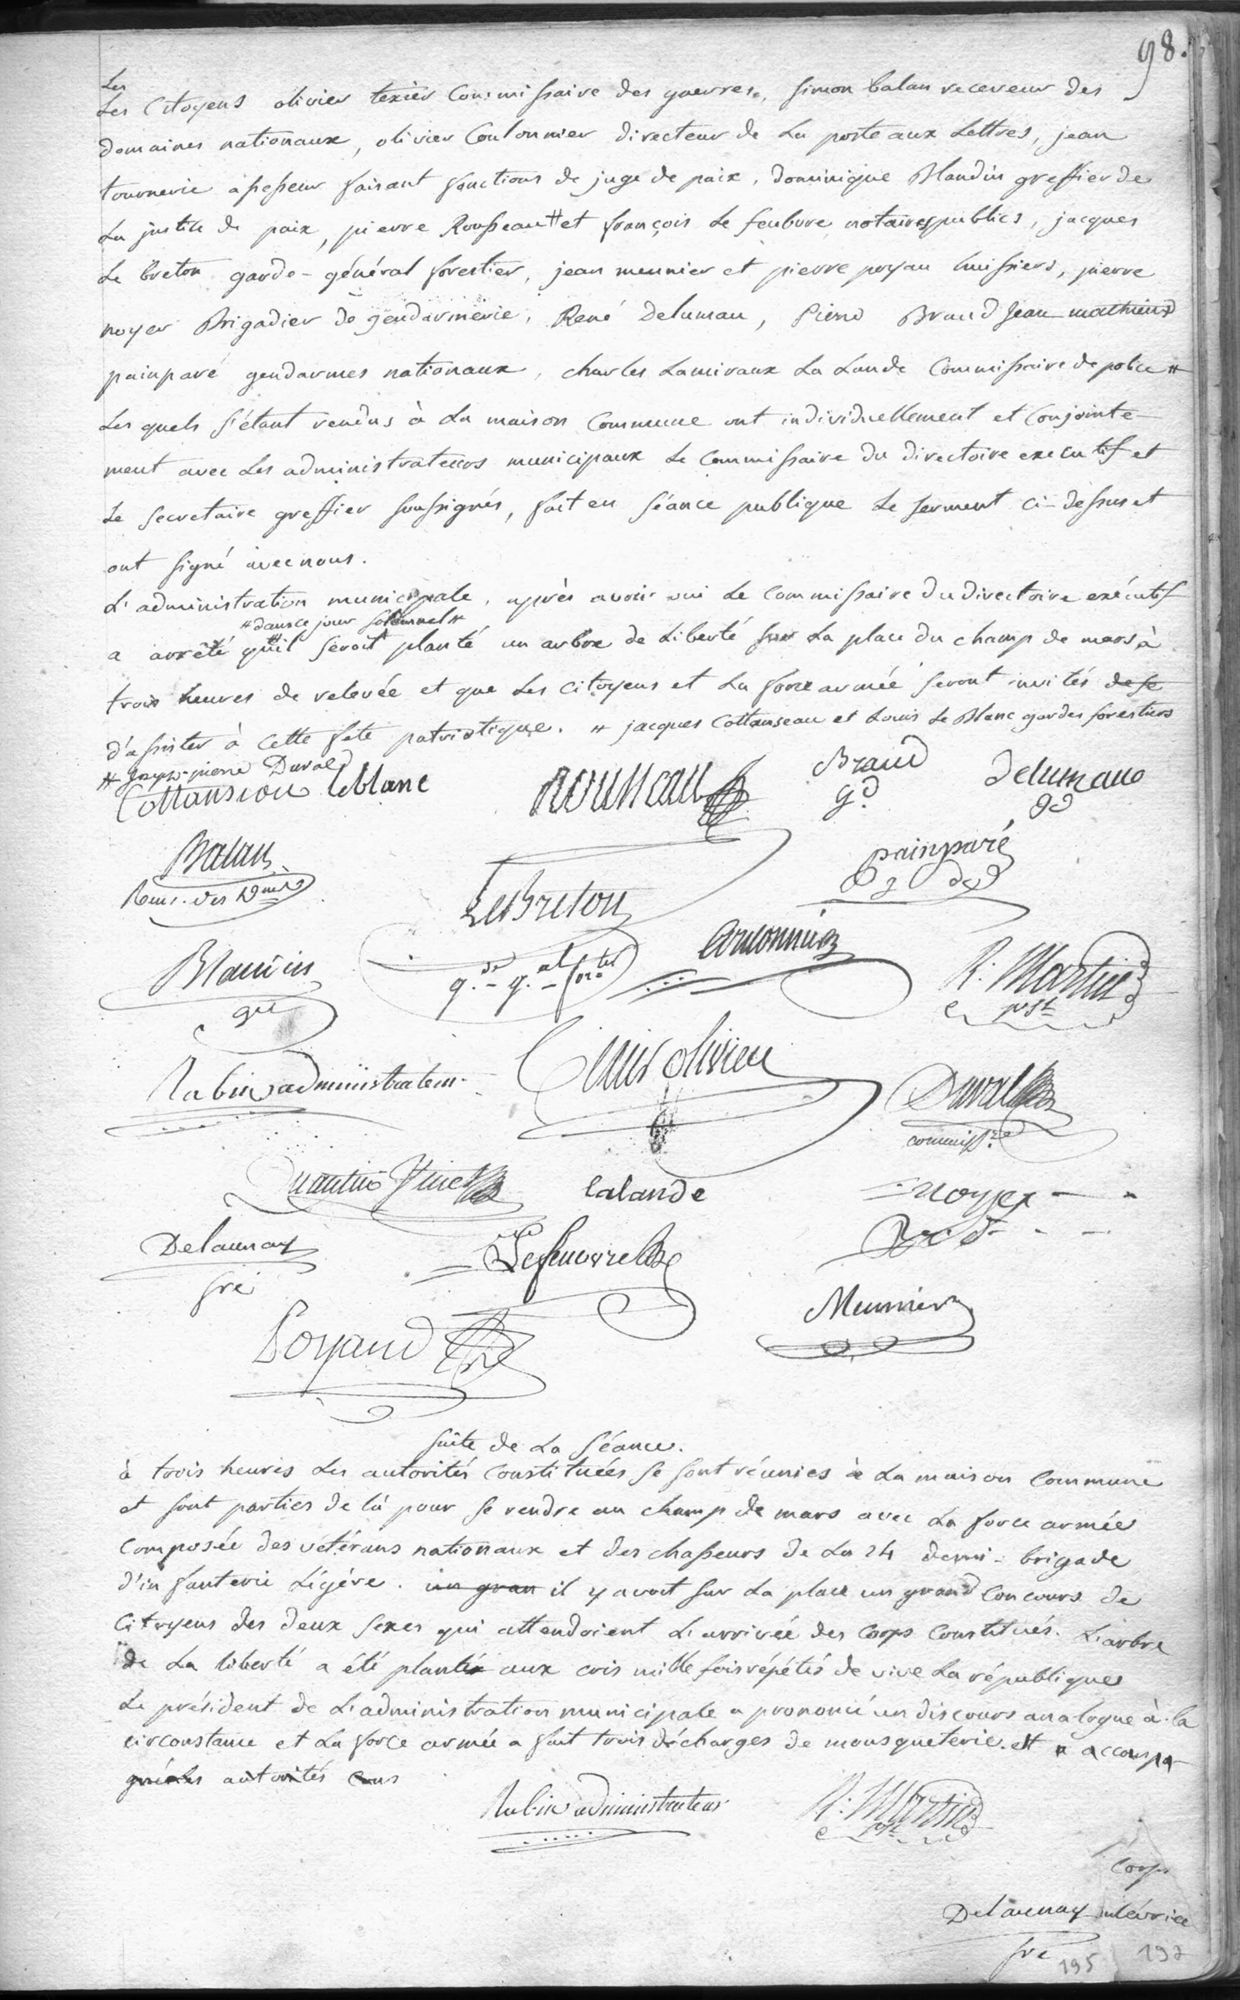 98.
Les
Les Citoyens olivier texier Commissaire des guerres, simon balan receveur des
domaines nationaux, olivier Coulonnier directeur de La poste aux Lettres, jean
tournerie assesseur faisant fonctions de juge de paix, dominique Blandin greffier de
La justice de paix, pierre Rousseau # et françois Le feubvre notaires publics, jacques
Le breton garde-général forestier, jean meunier et pierre poyau huissiers, pierre
noyer Brigadier de gendarmerie, René Delumau, Pierre Braud jean mathieu
painparé gendarmes nationaux, charles Lamiraux La Lande Commissaire de police #
Les quels s'étant rendus à La maison Commune ont individuellement et Conjointe-
ment avec Les administrateurs municipaux Le Commissaire du directoire executif et
Le Secretaire greffier soussignés, fait en séance publique Le serment ci-dessus et
ont signé avec nous.
L'administration municipale, après avoir oui Le Commissaire du directoire exécutif
# dans ce jour solemnel #
a arrêté qu'il seroit planté un arbre de Liberté sur La place du champ de mars à
trois heures de relevée et que Les Citoyens et La force armée seront invités de se
d'assister à Cette fête patriotique. # jacques Cottanseau et Louis Le Blanc gardes forestiers
# joseph-pierre Duval
Cottanseau leblanc Rousseau Braud gd Delumeau gd
Balan
Recev. des Dnes
painparé
Le Breton
g. de g. al for. ter
Coulonnier
Blandin
gre
R: Martin
pst
Rabin administrateur
Louis olivier
Duval
commiss.re
Quantin Pinet lalande noyer
Delaunay
gre
Lefeuvre
Meunier
Poyaud
Suite de La Séance.
à trois heures Les autorités Constituées se sont réunies à La maison Commune
et sont parties de là pour se rendre au champ de mars avec La force armée
Composée des vétérans nationaux et des chasseurs de La 24 demi-brigade
d'infanterie Légère. un gran il y avoit sur La place un grand Concours de
Citoyens des deux sexes qui attendoient L'arrivée des Corps Constitués. L'arbre
de La liberté a été planté aux cris mille fois répétés de vive La république
Le président de L'administration municipale a prononcé un discours analogue à la
circonstance et La force armée a fait trois décharges de mousqueterie. et a accompa
gné les autorités cons
Rabin administrateur R: Martin
pst
Corps
Delaunay
gre
195 197